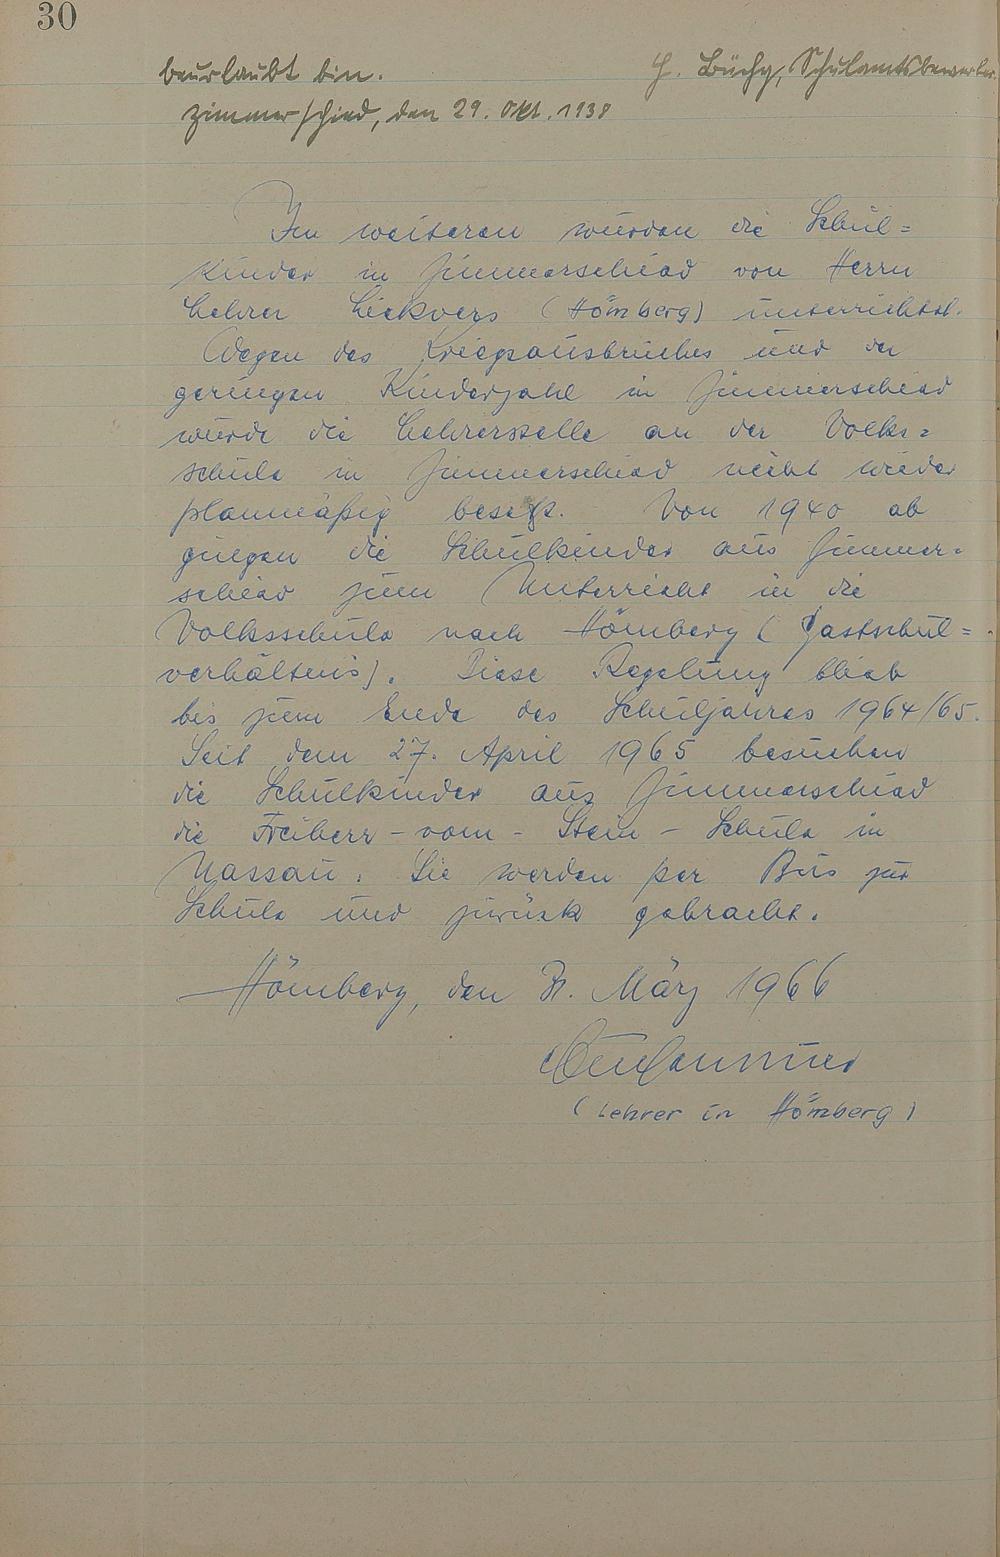 30
beurlaubt bin. H. Büchy, Schulamtsbewerber.
Zimmerschied, den 29. Okt. 1938
Im weiteren wurden die Schul=
kinder in Zimmerschied von Herrn
Lehrer (Hömberg) unterrichtet.
Wegen des Kriegsausbruches und der
geringen Kinderzahl in Zimmerschied
wurde die Lehrerstelle an der Volks=
schule in Zimmerschied nicht wieder
planmäßig besetzt. Von 1940 ab
gingen die Schulkinder aus Zimmer=
schied zum Unterricht in die
Volksschule nach Hömberg (Gastschul=
verhältnis). Diese Regelung blieb
bis zum Ende des Schuljahres 1964/65.
Seit dem 27. April 1965 besuchen
die Schulkinder aus Zimmerschied
die Freiherr-vom-Stein-Schule in
Nassau. Sie werden per Bus zur
Schule und zurück gebracht.
Hömberg, den 31. März 1966
(Lehrer in Hömberg)